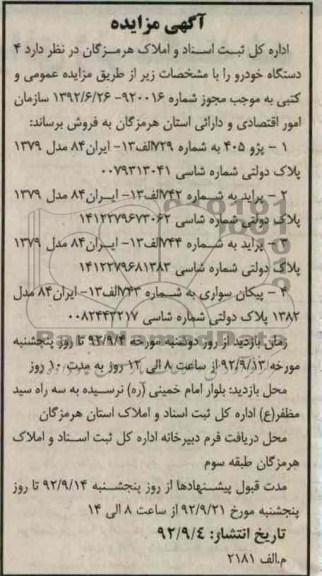 آگهی مزایده
اداره کل ثبت اسناد و املاک هرمزگان در نظر دارد ۴
دستگاه خودرو را با مشخصات زیر از طریق مزایده عمومی و
کتبی به موجب مجوز شماره ۹۲۰۰۱۶- ۱۳۹۲/۶/۲۶ سازمان
امور اقتصادی و دارائی استان هرمزگان به فروش برساند:
۱ - پژو ۴۰۵ به شماره ۷۲۹الف۱۳- ایران۸۴ مدل ۱۳۷۹
پلاک دولتی شماره شاسی ۰۰۷۹۳۱۳۰۴۱
۲ - پراید به شماره ۷۴۲الف۱۳- ایران۸۴ مدل ۱۳۷۹
پلاک دولتی شماره شاسی ۱۴۱۲۲۷۹۶۷۳۰۶۲
۳ - پراید به شماره ۷۴۴الف۱۳- ایران۸۴ مدل ۱۳۷۹
پلاک دولتی شماره شاسی ۱۴۱۲۲۷۹۶۸۱۳۸۳
۴ - پیکان سواری به شماره ۷۴۳الف۱۳- ایران۸۴ مدل
۱۳۸۲ پلاک دولتی شماره شاسی ۰۰۸۲۴۴۳۲۱۷
زمان بازدید از روز دوشنبه مورخه ۹۲/۹/۴ تا روز پنجشنبه
مورخه ۹۲/۹/۱۳ از ساعت ۸ الی ۱۲ روز به مدت ۱۰ روز
محل بازدید: بلوار امام خمینی (ره) نرسیده به سه راه سید
مظفر(ع) اداره کل ثبت اسناد و املاک استان هرمزگان
محل دریافت فرم دبیرخانه اداره کل ثبت اسناد و املاک
هرمزگان طبقه سوم
مدت قبول پیشنهادها از روز پنجشنبه ۹۲/۹/۱۴ تا روز
پنجشنبه مورخ ۹۲/۹/۲۱ از ساعت ۸ الی ۱۴
تاریخ انتشار: ۹۲/۹/۴
م.الف ۲۱۸۱